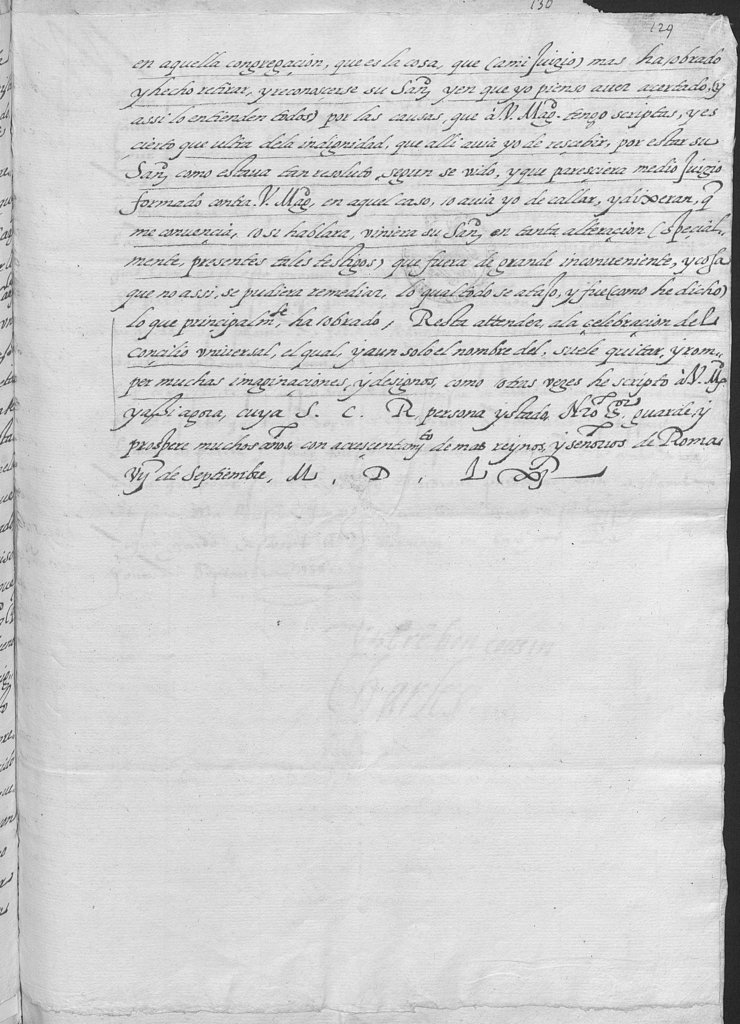 130
129
en aquella congregaçion, que es la cosa, que (a mi juizio) mas ha obrado
y hecho retirar, y reconoscerse su Sanᵈ, y en que yo pienso auer acertado, (y
assi lo entienden todos) por las causas, que à V. Magᵈ tengo scriptas, y es
cierto que ultra dela indignidad, que alli auia yo de rescebir, por estar su
Sanᵈ como estaua tan resoluto, segun se vido, y que paresciera medio juizio
formado contra. V. Magᵈ, en aquel caso, o auia yo de callar, y dixeran, q̃
me conuencia, o si hablara, viniera su Sanᵈ en tanta alteraçion (special-
mente, presentes tales testigos) que fuera de grande inconueniente, y cosa
que no assi, se pudiera remediar, lo qual todo se atajo, y fue (como he dicho)
lo que principalmᵗᵉ, ha obrado, Resta attender, a la celebracion del
Concilio vniuersal, el qual, y aun solo el nombre del, suele quitar, y rom-
per muchas imaginaçiones, y designos, como otras vezes he scripto à V. Mᵈ
y assi agora, cuya S. C. R. persona y stado, Nr̃o S.ᵒʳ guarde, y
prospere muchos años, con acresçentamᵗᵒ de mas reynos, y señorios de Roma
vij de Septiembre, M. D. L
Charles